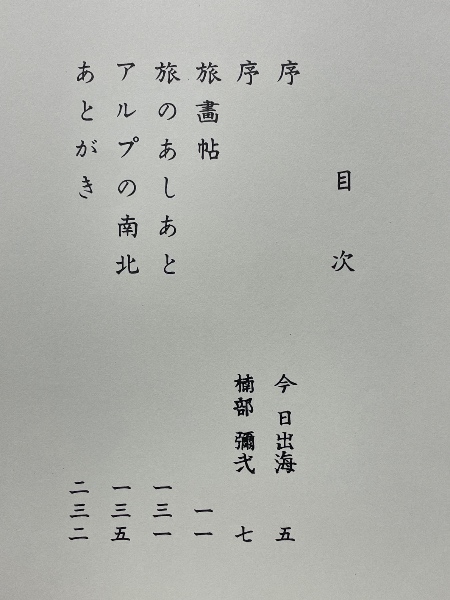 目次
序 今日出海 五
序 楠部彌弌 七
旅畵帖 一一
旅のあしあと 一三一
アルプの南北 一三五
あとがき 二三二